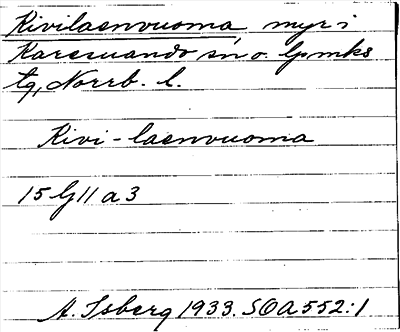 Kivilaenvuoma, myr i
Karesuando sn o. lpmks
tg, Norrb. l.
Kivi-laenvuoma
15 G 11 a 3
A. Isberg 1933. SOA 552:1